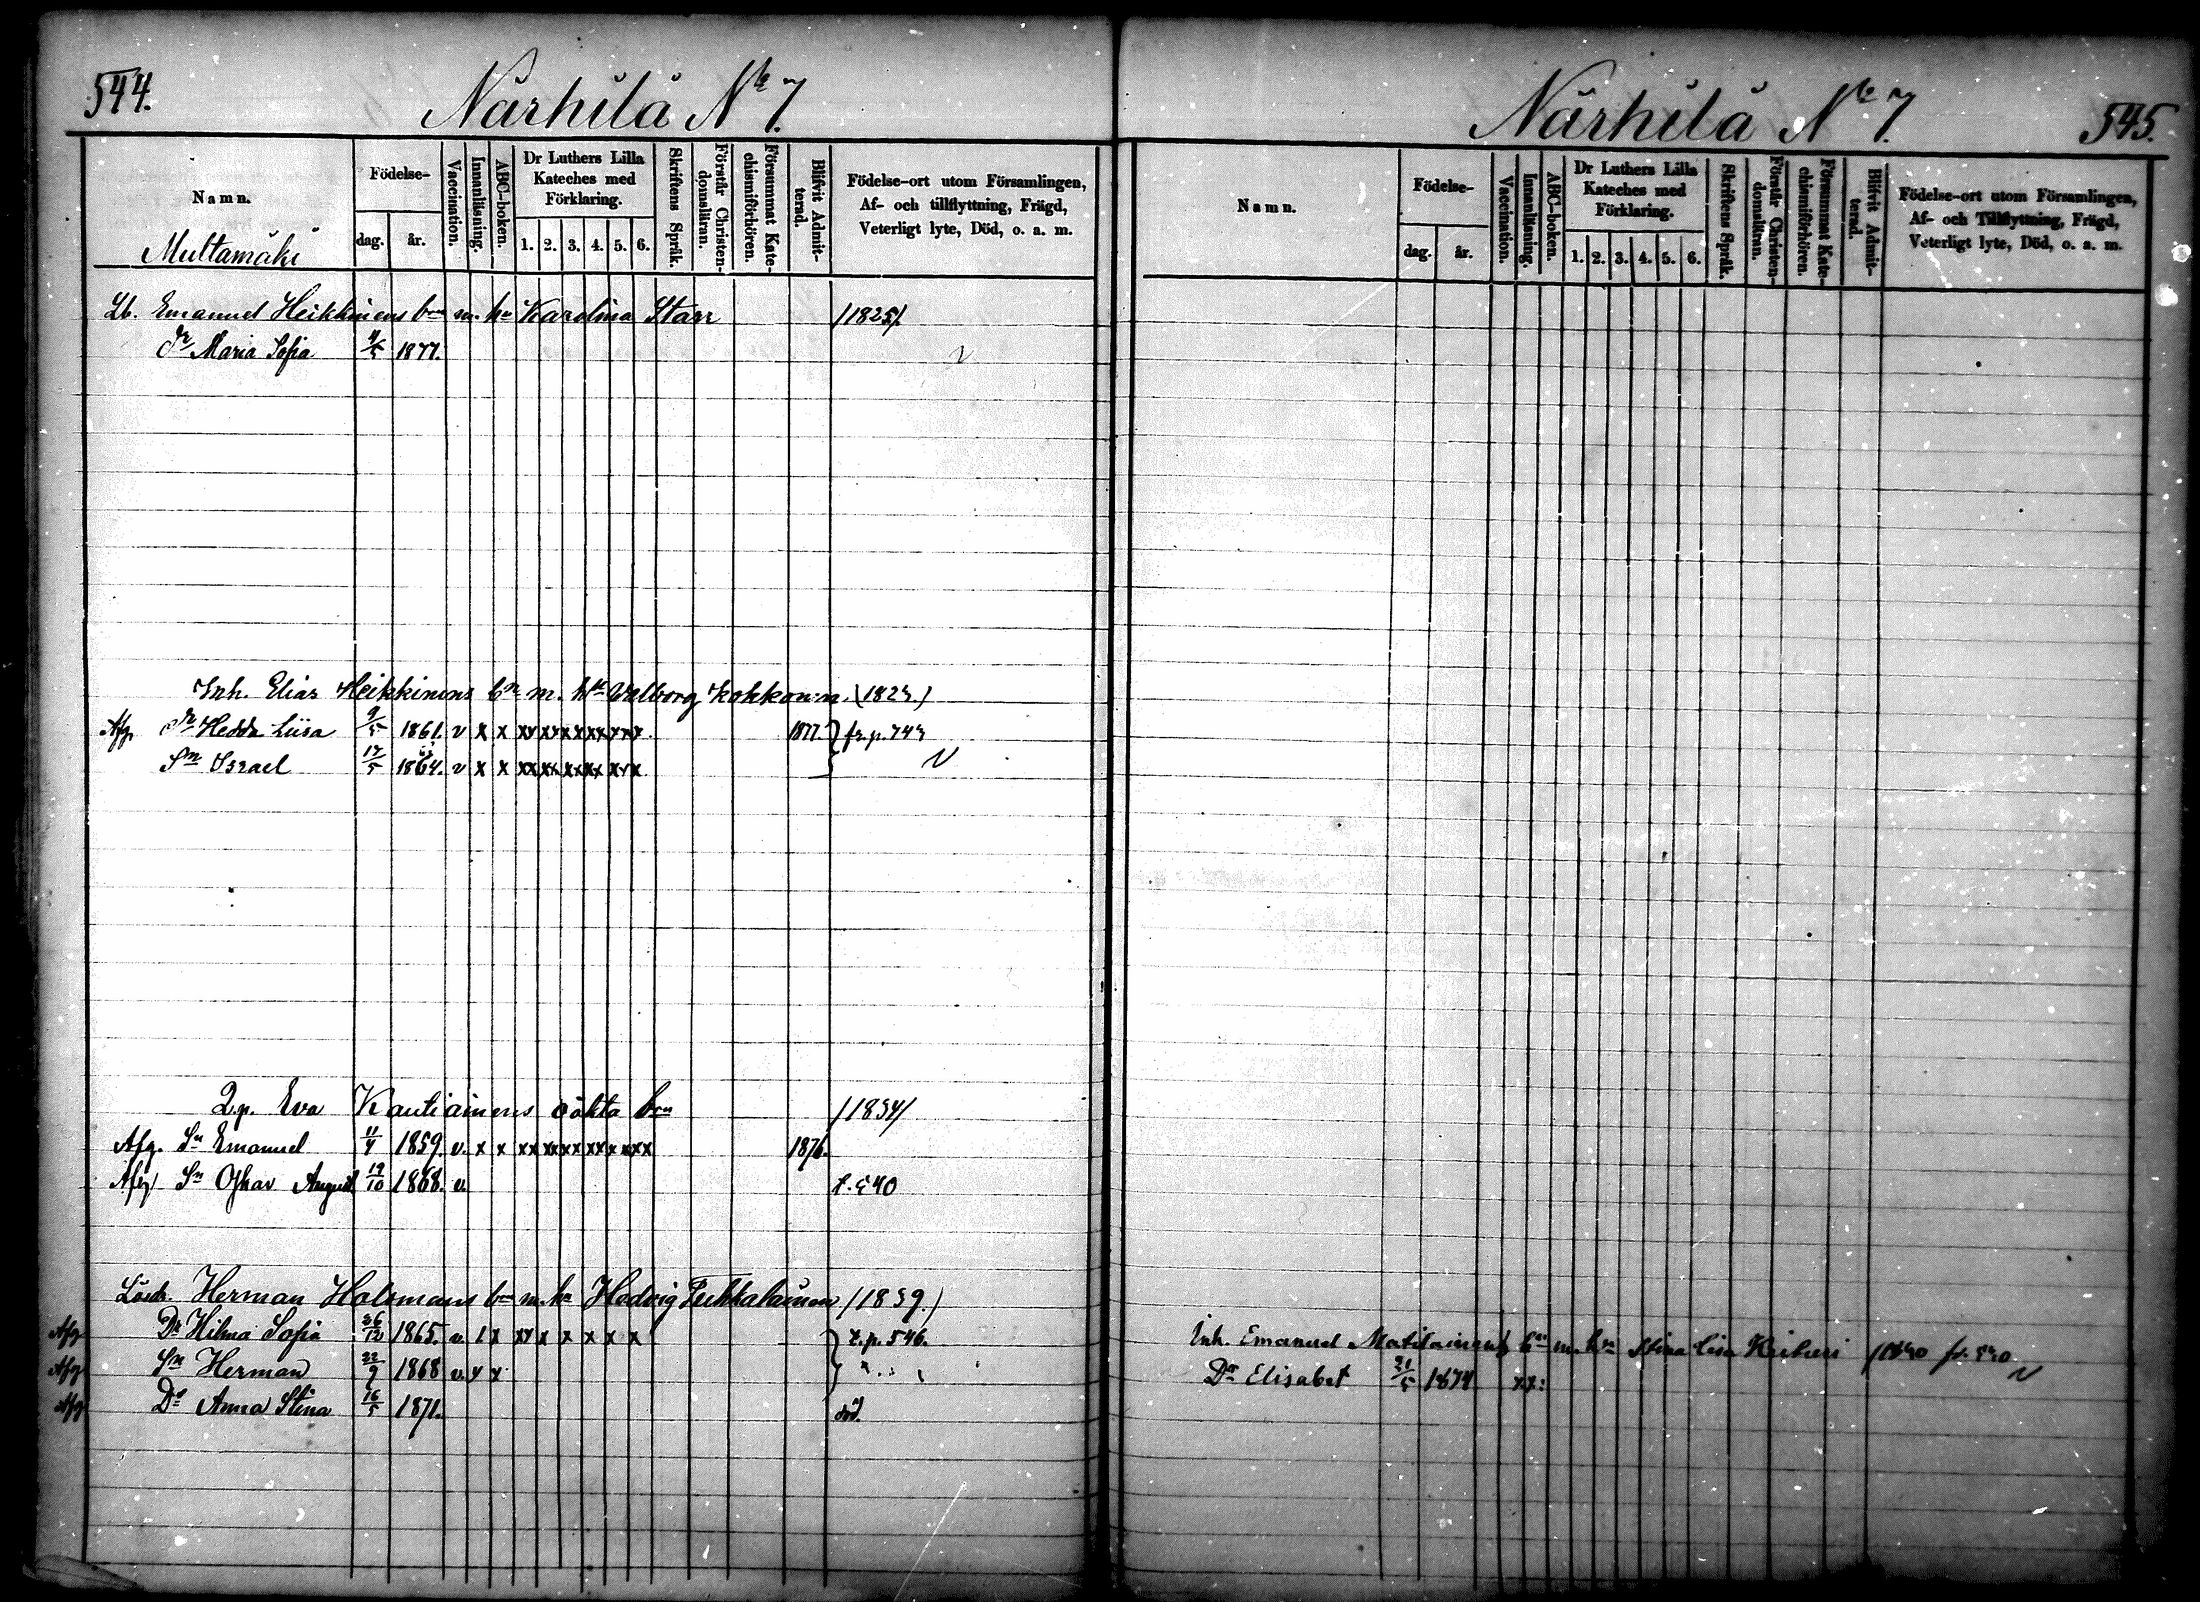 544.
Närhilä No 7.
Namn.
Födelse-
dag.
år.
Vaccination.
Innanläsning.
ABC-boken.
Dr Luthers Lilla Kateches med Förklaring.
1. 2. 3. 4. 5. 6.
Skriftens Språk.
Förstår Christendomsläran.
Försummat Katechismiförhören.
Blifvit Admitterad.
Födelse-ort utom Församlingen,
Af- och tillflyttning, Frägd,
Veterligt lyte, Död, o. a. m.
Multamäki
Lb. Emanuel Heikkinens bn m. hu Karolina Starr /1825/.
Dr Maria Sofia 4/5 1877.
Inh. Elias Heikkinens bn m. hu Valborg Kokkonin. (1823)
Afg. Dr Hedda Liisa 9/5 1861. v x x xx xx xx xx xx x 1877. } fr. p. 743
Sn Israel 17/5 1864. v x x xx xx xx xx xx x
Eva Kautiainens oäkta bn /1834/
Afg. Sn Emanuel 11/4 1859. v. x x xx xx xx xx x xxx 1876.
Afg Sn Oskar August 19/10 1868. v. t. 540
Herman Holsmans bn m. hu Hedvig (1839.)
Afg Dr Hilma Sofia 26/12 1865. v. x xx x x x x x } t. p. 546.
Afg Sn Herman 22/9 1868 v. x x
Afg Dr Anna Stina 16/5 1871. död.
Närhilä No 7.
545.
Namn.
Födelse-
dag.
år.
Vaccination.
Innanläsning.
ABC-boken.
Dr Luthers Lilla Kateches med Förklaring.
1. 2. 3. 4. 5. 6.
Skriftens Språk.
Förstår Christendomsläran.
Försummat Katechismiförhören.
Blifvit Admitterad.
Födelse-ort utom Församlingen,
Af- och Tillflyttning, Frägd,
Veterligt lyte, Död, o. a. m.
Inh. Emanuel Matilainens bn m. hu Stina Lisa fr. 540
Dr Elisabet 21/5 1874 x x